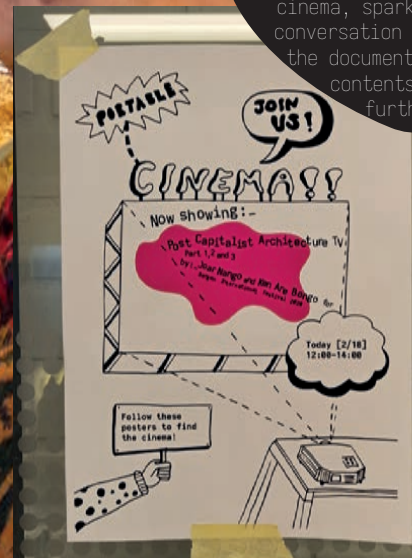 cinema, spark
conversation
the document
contents
furth
PORTABLE
JOIN
US!
CINEMA!!
Now showing:-
Post Capitalist Architecture Tv
Part 1,2 and 3
by:. Joar Nango and Ken Are Bongo for
International Festival
Today [2/18]
12:00-14:00
Follow these
posters to find
the cinema!